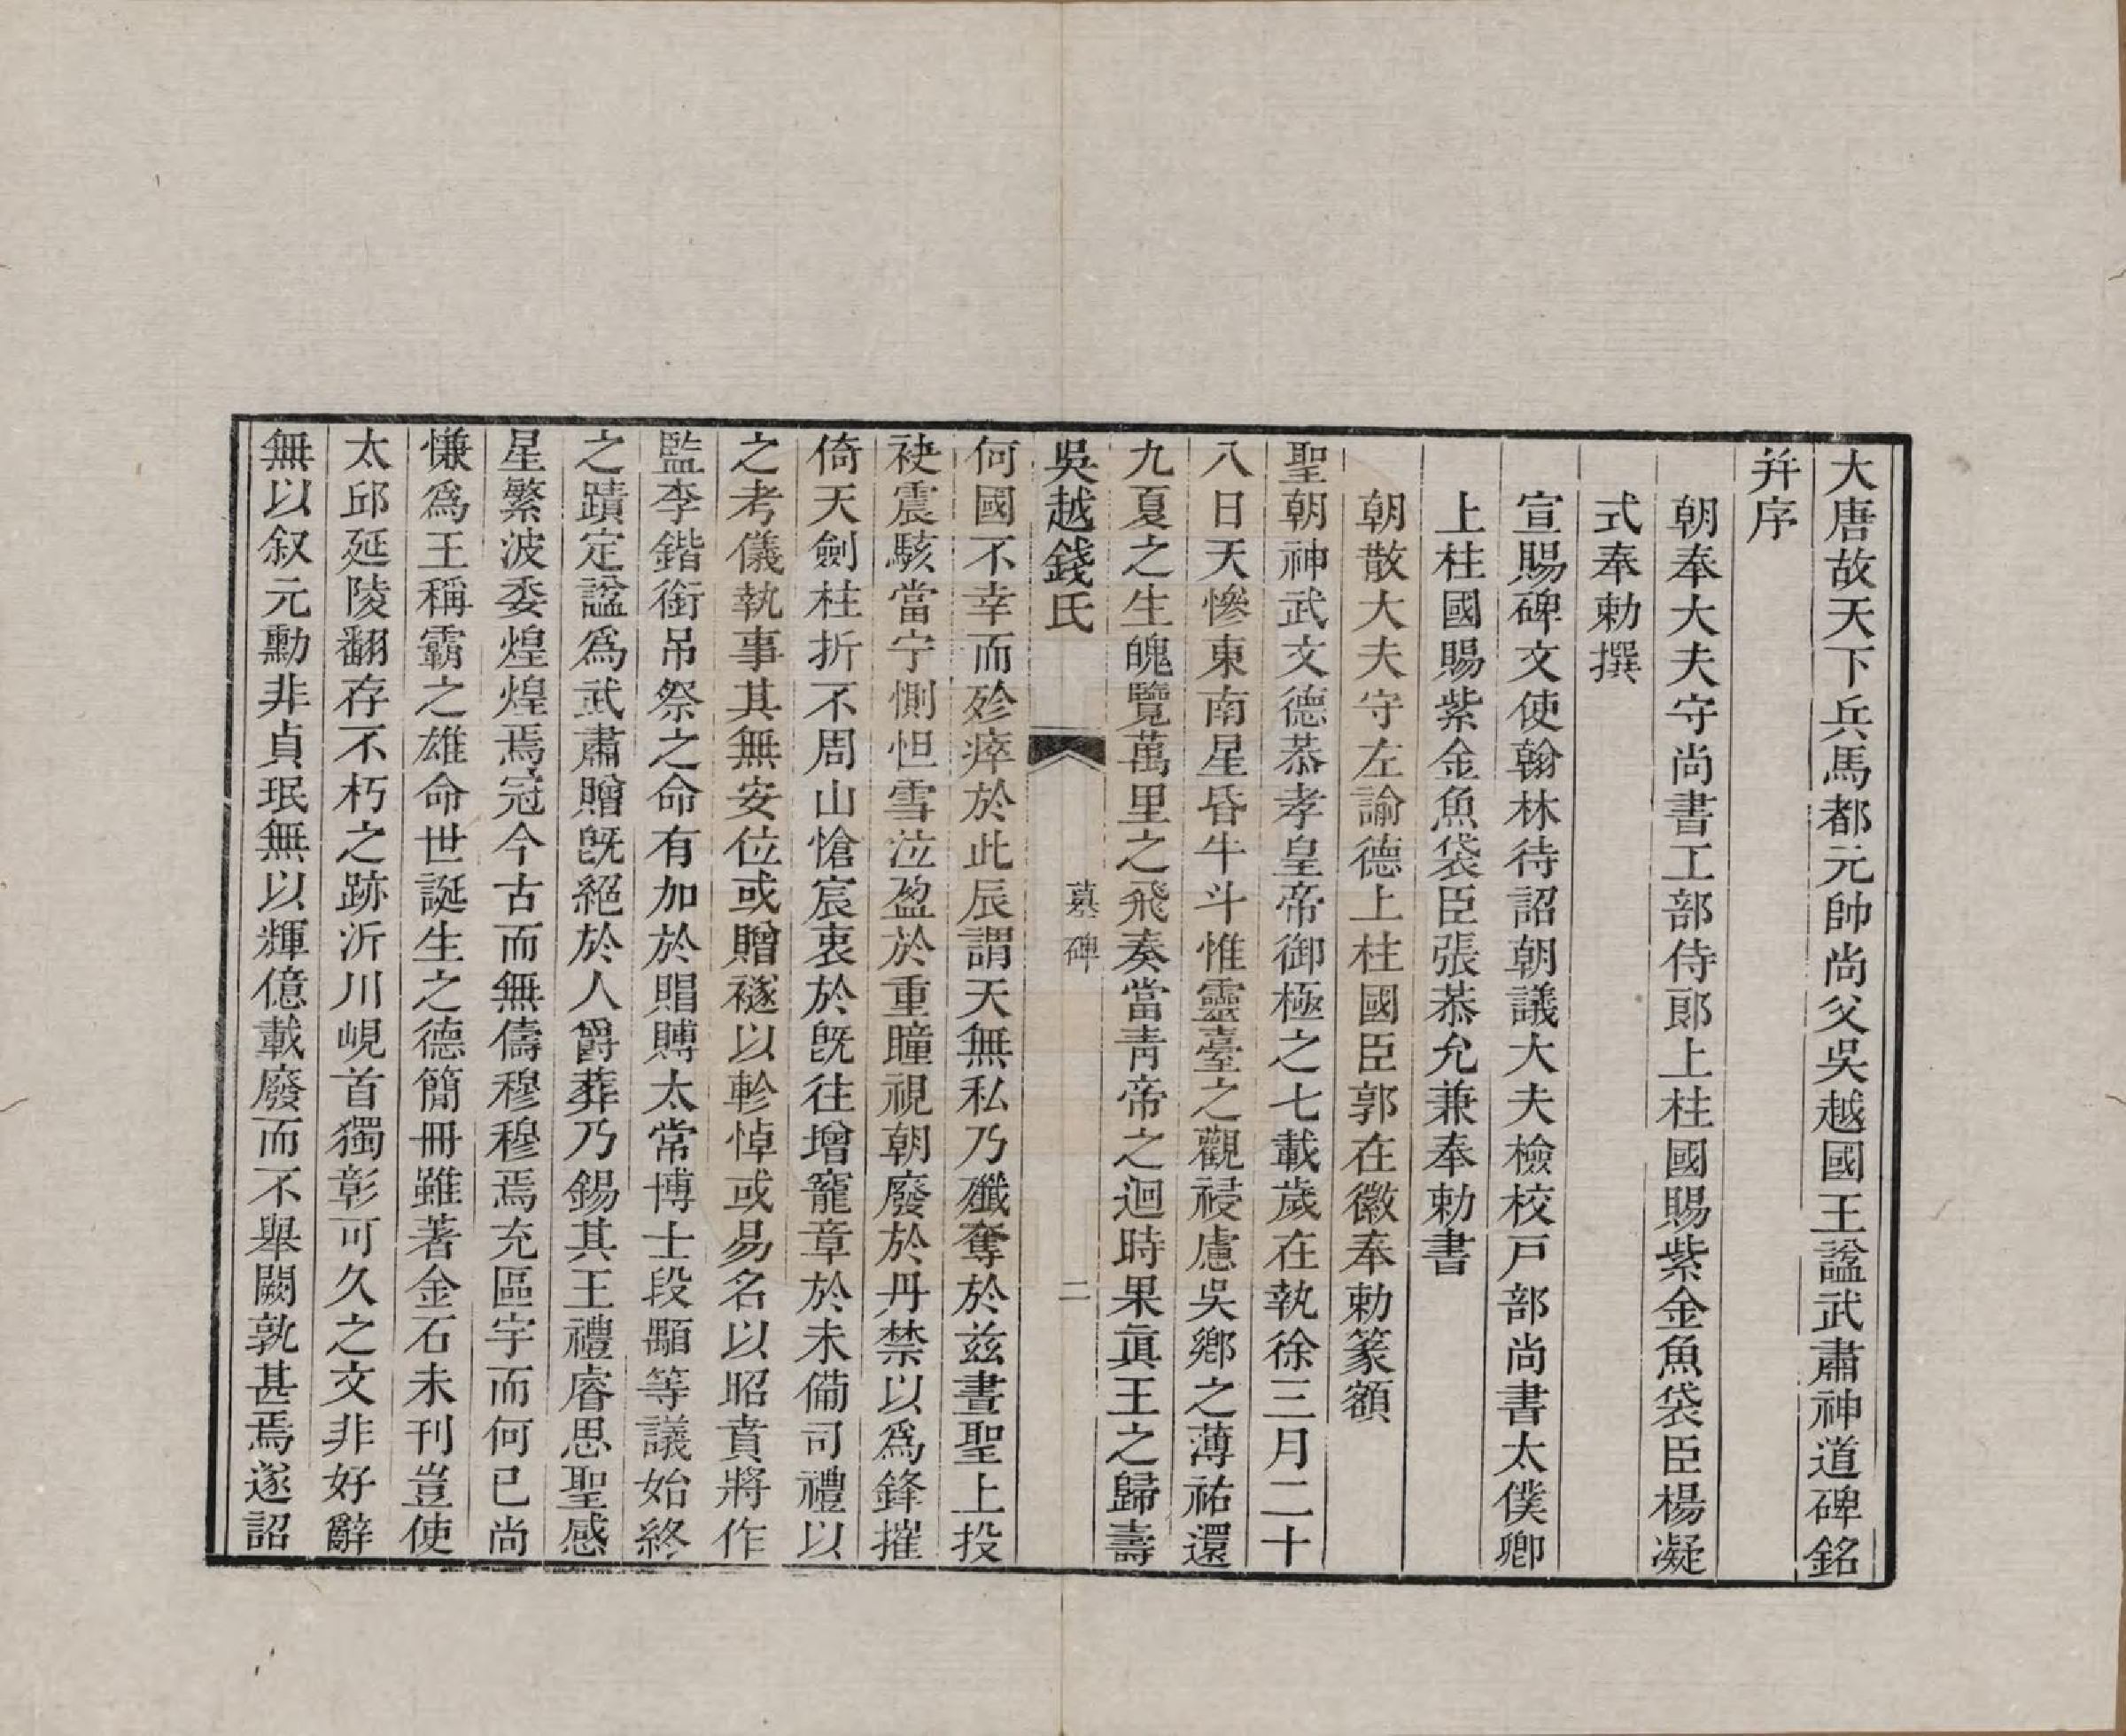 大唐故天下兵馬都元帥尚父吳越國王諡武肅神道碑銘
并序
朝奉大夫守尚書工部侍郎上柱國賜紫金魚袋臣楊凝
式奉勅撰
宣賜碑文使翰林待詔朝議大夫檢校戶部尚書太僕卿
上柱國賜紫金魚袋臣張恭允兼奉勅書
朝散大夫守左諭德上柱國臣郭在徽奉勅篆額
聖朝神武文德恭孝皇帝御極之七載歲在執徐三月二十
八日天慘東南星昏牛斗惟靈臺之觀祲慮吳鄉之薄祐還
九夏之生魄覽萬里之飛奏當青帝之迴時果眞王之歸壽
吳越錢氏
墓碑
二
何國不幸而殄瘁於此辰謂天無私乃殲奪於兹晝聖上投
袂震駭當宁惻怛雪泣盈於重瞳視朝廢於丹禁以爲鋒摧
倚天劍柱折不周山愴宸衷於旣往增寵章於未備司禮以
之考儀執事其無安位或贈襚以軫悼或易名以昭賁將作
監李鍇銜吊祭之命有加於賵賻太常博士段顒等議始終
之蹟定諡爲武肅贈旣絕於人爵葬乃錫其王禮睿思聖感
星繁波委煌煌焉冠今古而無儔穆穆焉充區宇而何已尚
慊爲王稱霸之雄命世誕生之德簡冊雖著金石未刊豈使
太邱延陵翻存不朽之跡沂川峴首獨彰可久之文非好辭
無以叙元勳非貞珉無以輝億載廢而不舉闕孰甚焉遂詔